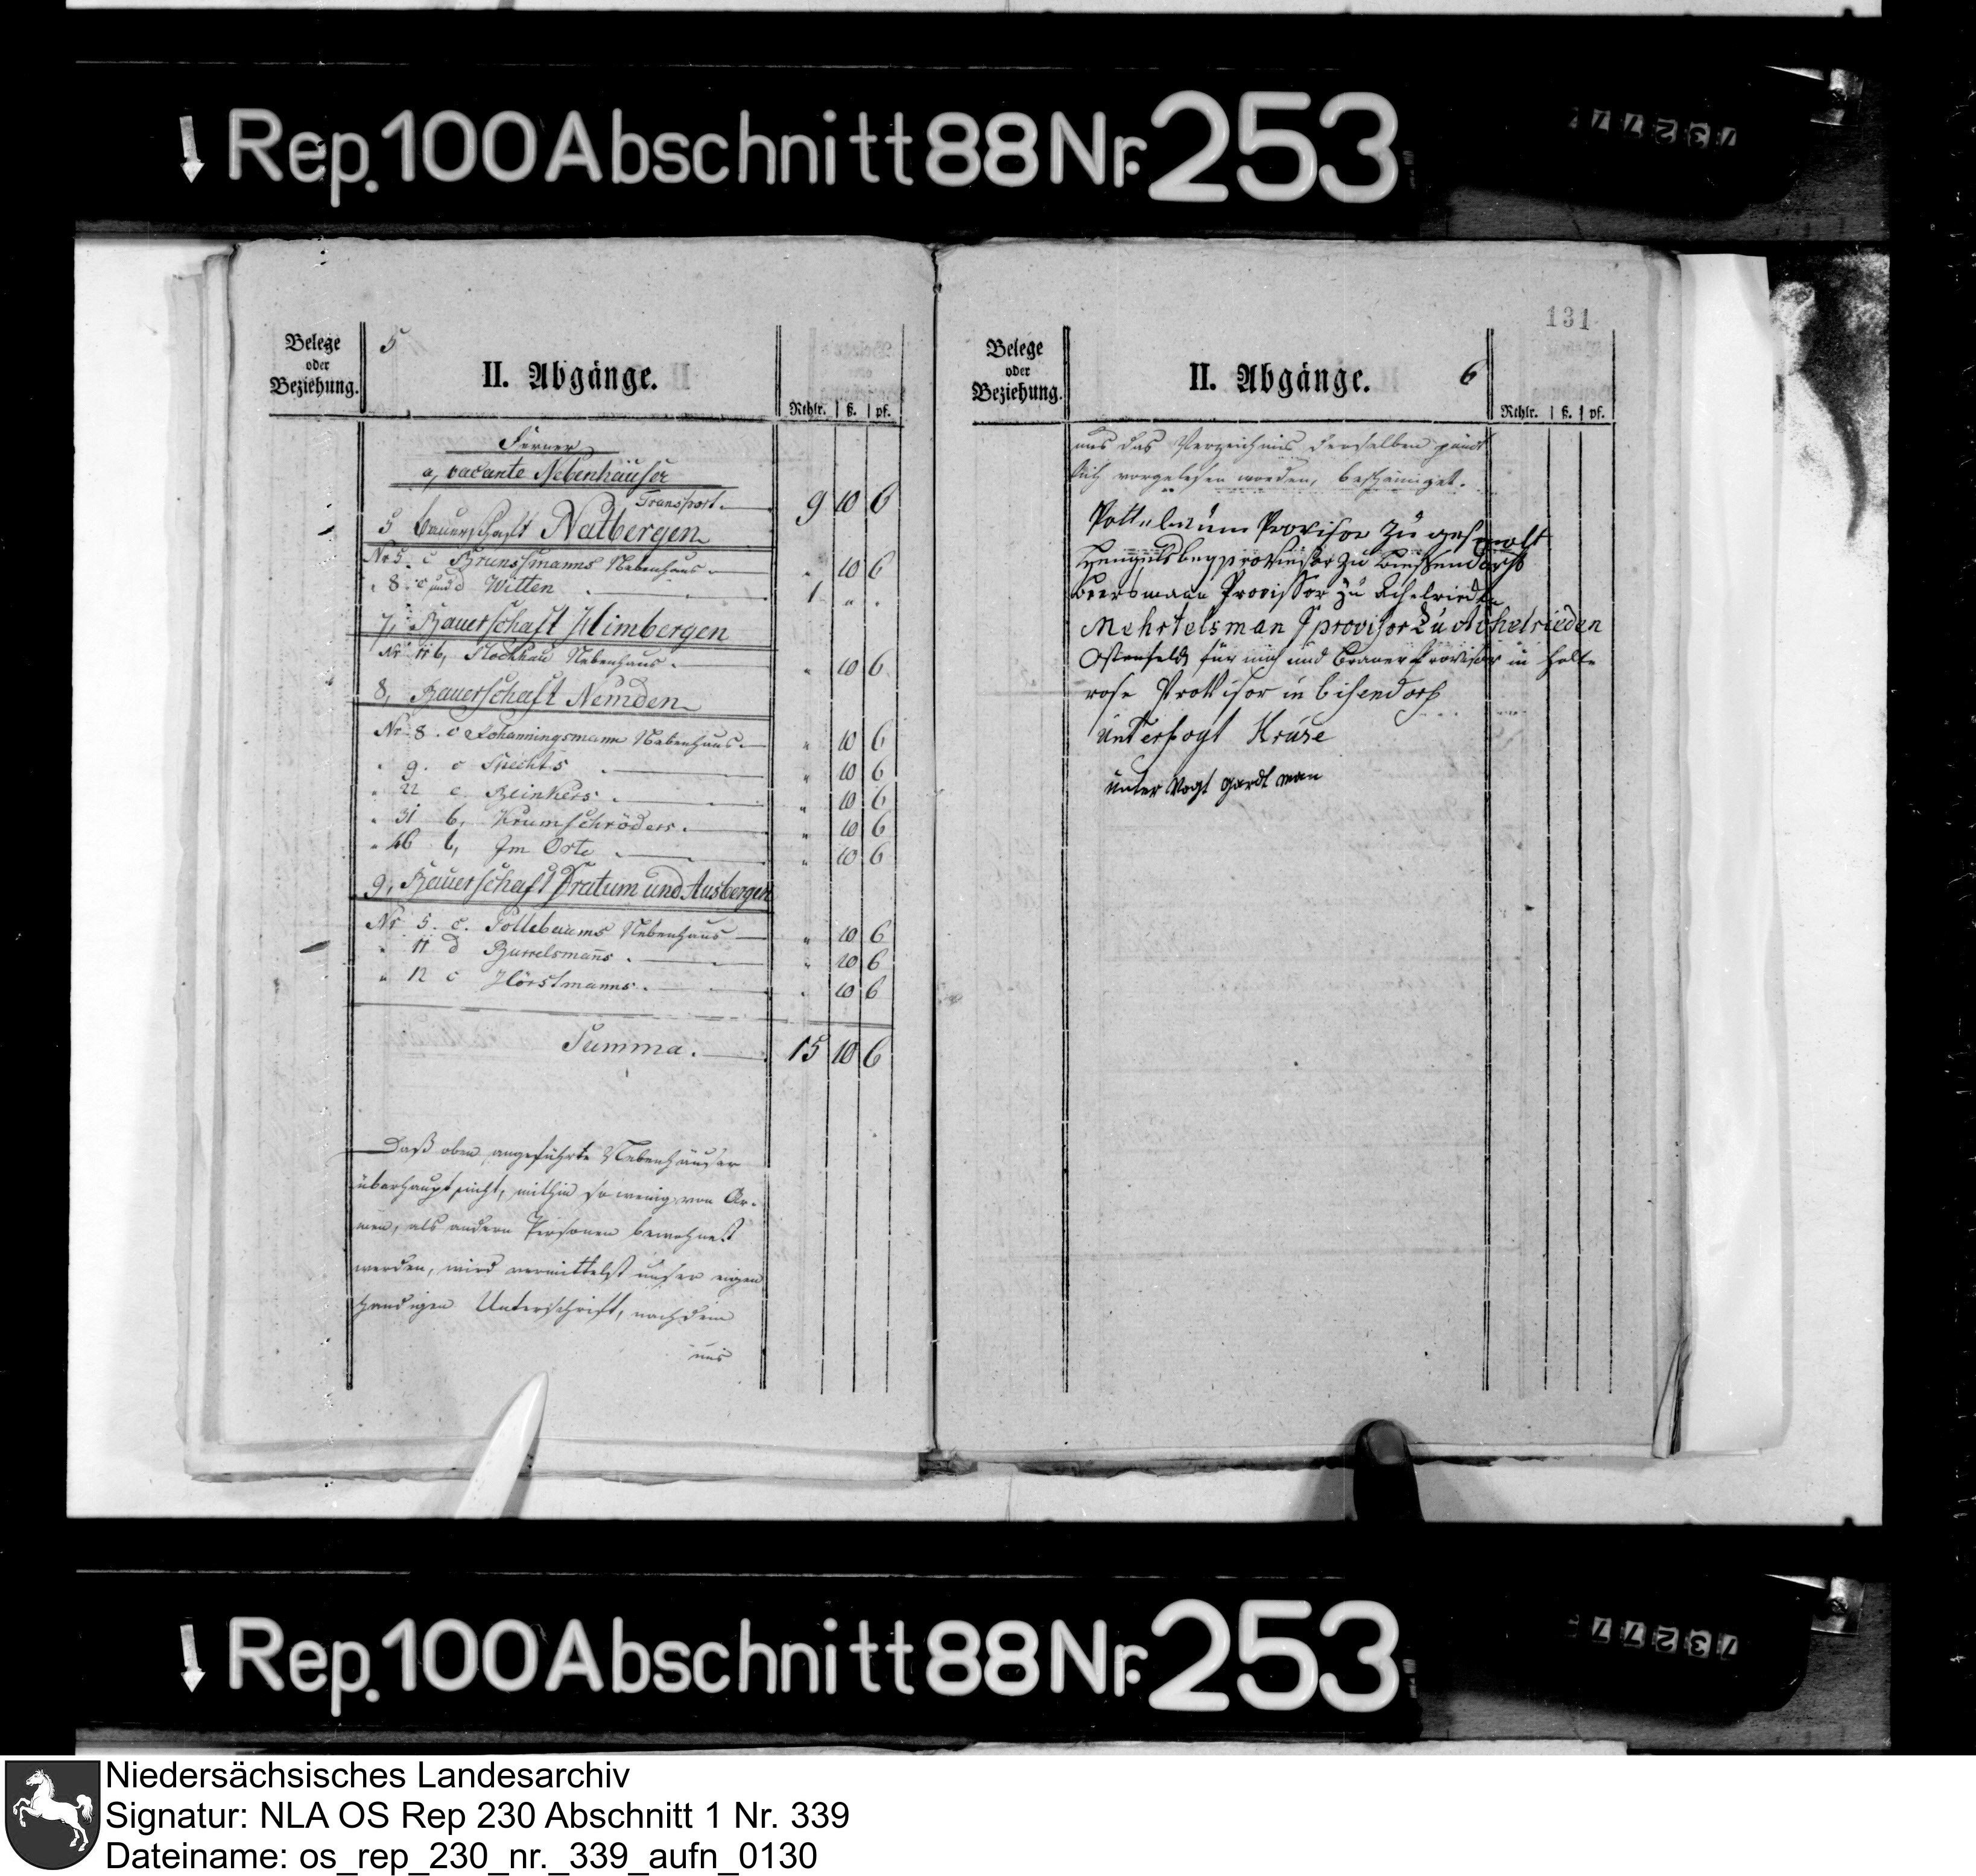 Rep. 100 Abschnitt 88 Nr. 253
5
Belege
oder
Beziehung.
II. Abgänge.
Rthlr. ß. pf.
Ferner
a, vacante Nebenhäuser
Transport. 9 10 6
5 Bauerschaft Natbergen
Nr 5. c Brunssmanns Nebenhaus " 10 6
" 8. c und d Witten 1 " "
7, Bauerschaft Uimbergen
Nr 11 b, Stockhau Nebenhaus " 10 6
8, Bauerschaft Nemden
Nr 8. c Johanningsmann Nebenhaus " 10 6
" 9. c Spechts " 10 6
" 22 c. Reinkers " 10 6
" 31 b, Krumschröders " 10 6
" 46 b, Im Orte " 10 6
9, Bauerschaft Dratum und Ausbergen
Nr 5. c. Pottebaums Nebenhaus " 10 6
" 11 d Burrelsmanns " 10 6
" 12 c Horstmanns " 10 6
Summa. 15 10 6
Daß oben angeführte Nebenhäuser
überhaupt nicht, mithin so wenig von Ar-
men, als andern Personen bewohnet
werden, wird vermittelst unser eigen
händigen Unterschrift, nachdem
uns
131
Belege
oder
Beziehung.
II. Abgänge.
6
Rthlr. ß. pf.
uns das Verzeichnis derselben
lich vorgelesen worden, bescheiniget.
Pottebaum Provisor zu
provisor zu
Provissor zu Achelrieden
Mehrtelsman provisor zu Achelrieden
Ostenfeldt für mich und Braner Provisor in Holte
rose Provisor in bisendorf
Untervogt Kruse
unter Vogt gardt man
Rep. 100 Abschnitt 88 Nr. 253
Niedersächsisches Landesarchiv
Signatur: NLA OS Rep 230 Abschnitt 1 Nr. 339
Dateiname: os_rep_230_nr._339_aufn_0130